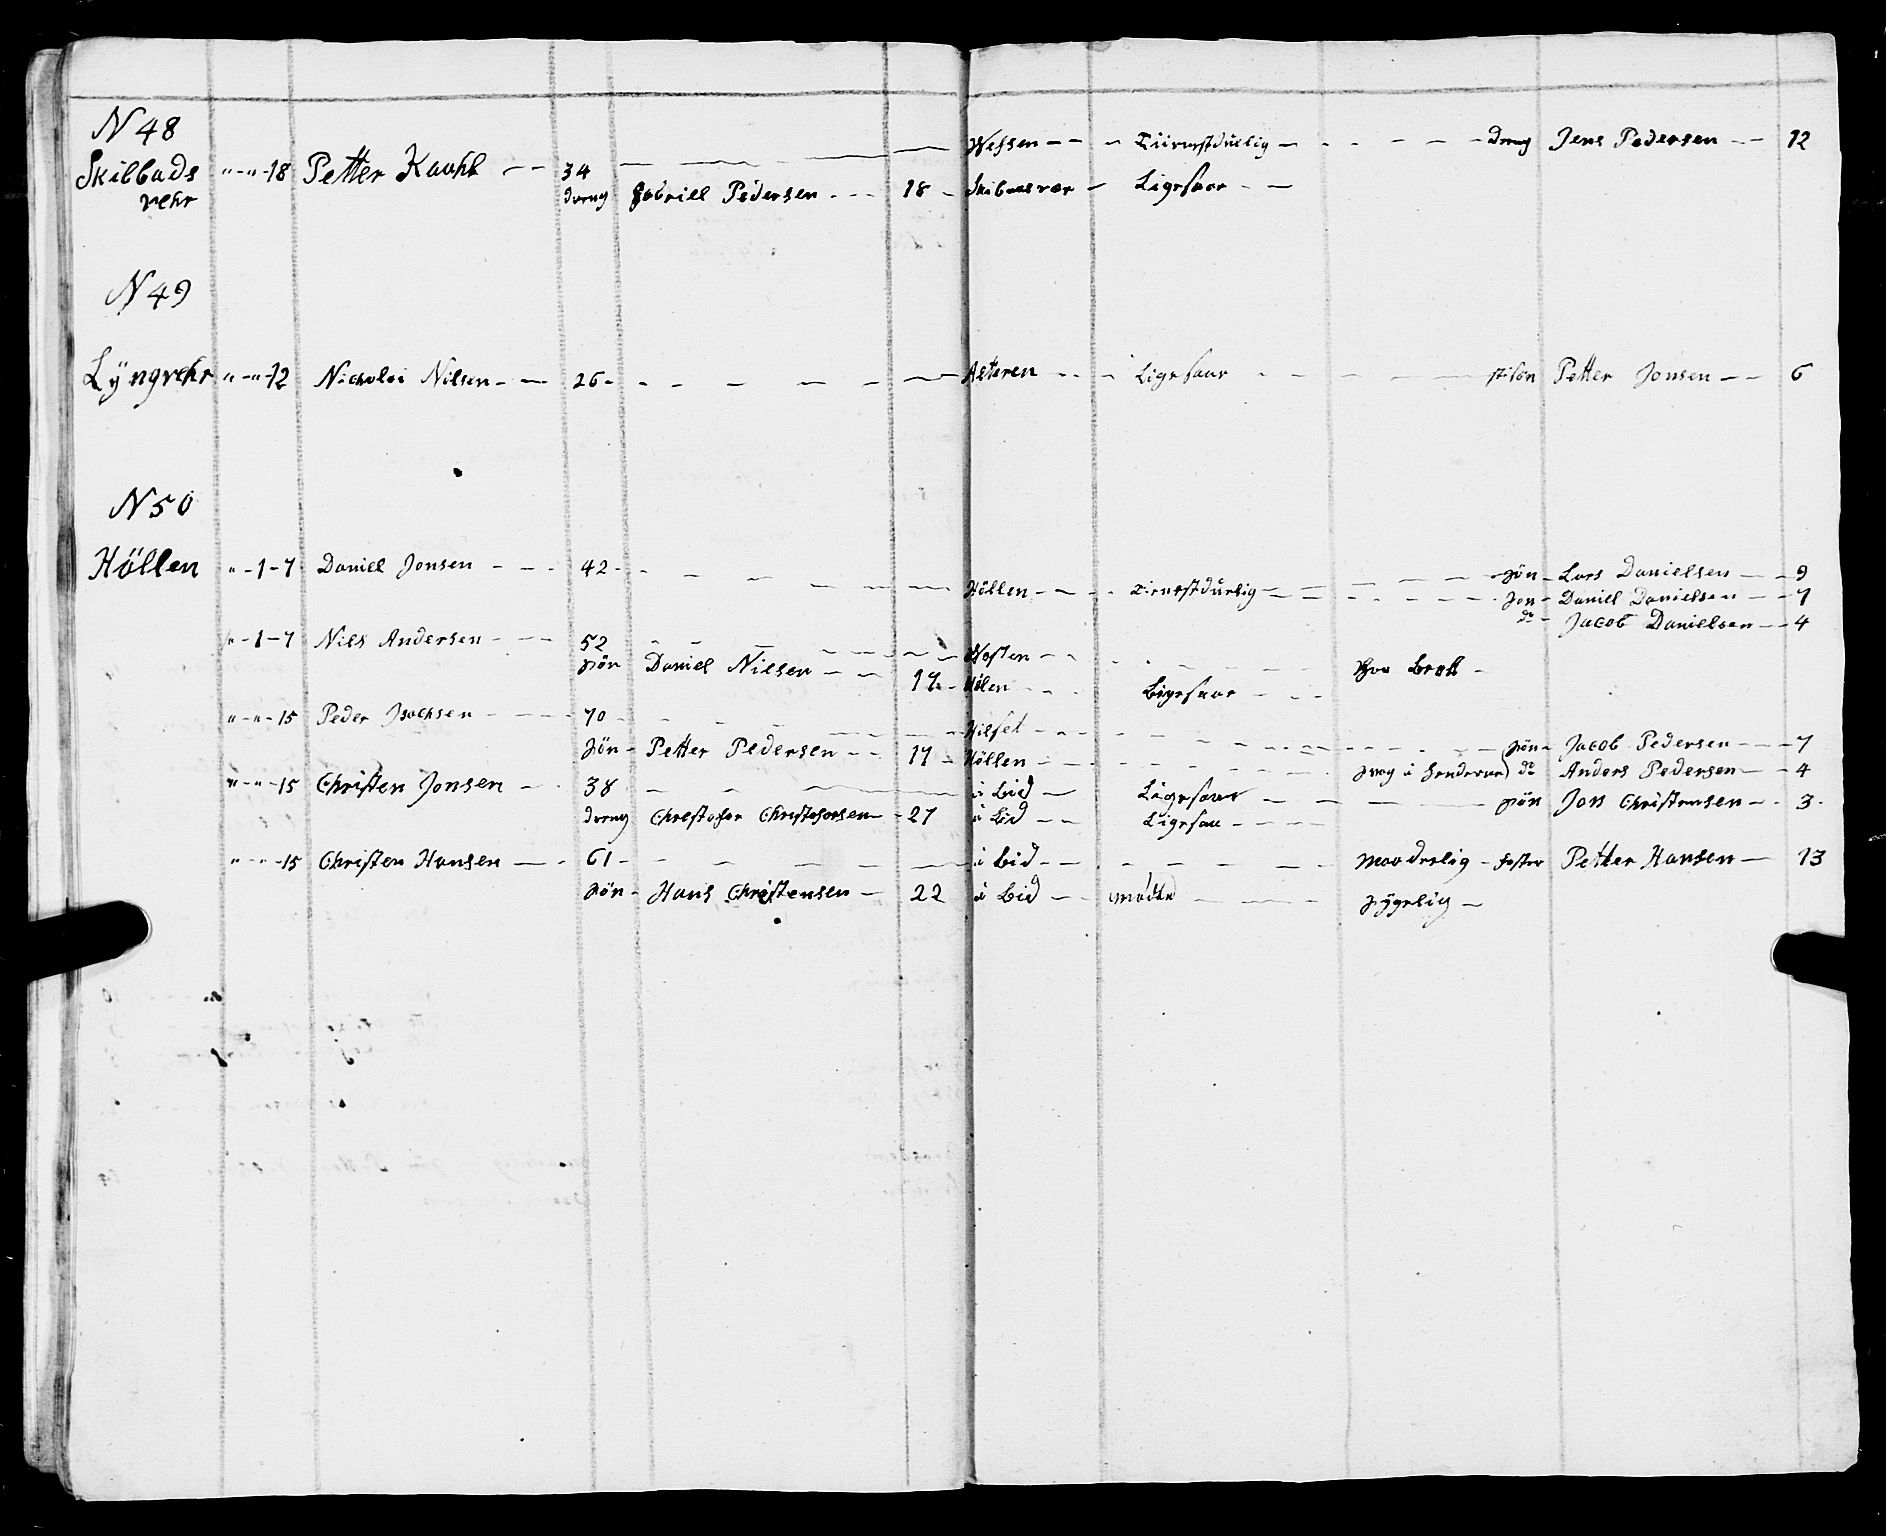 N 48
Skilbads „-„-18 Petter Kaahl -- 34 Wessen --- Tiennestduelig - dreng Jens Pedersen -- 12
vehr dreng Gabriell Pedersen --- 18 - Skibadsvær - Ligesaae --
N 49
Lÿngvehr „-„-12 Nicholai Nilsen -- 26 - Alteren --- Ligesaae stifsön Petter Jonsen -- 6
N 50
Höllen „-1-7 Daniel Jonsen --- 42 - Höllen --- Tienestduelig -- sön - Lars Danielsen -- 9
sön - Daniel Danielsen -- 7
do - Jacob Danielsen -- 4
„-1-7 Nils Andersen --- 52 -- Hosten -- har brok -
sön Daniel Nilsen -- 17 - Hölen --- Ligesaae ---
„-„-15 Peder Isachsen --- 70 - Hilset ---
sön - Petter Pedersen -- 17 - Höllen --- sön - Jacob Pedersen --- 7
svag i henderne do Anders Pedersen -- 4
„-„-15 Christen Jonsen -- 38 - i Lid - Ligesaae -- sön Jon Christensen -- 3 -
dreng Christofer Christofersen - 27 i Lid -- Ligesaae ---
„-„-15 Christen Hansen -- 61 - i Lid -- maadelig - foster Petter Hansen - 13
sön - Hans Christensen - 22 i Lid -- (mödte) sÿgelig -